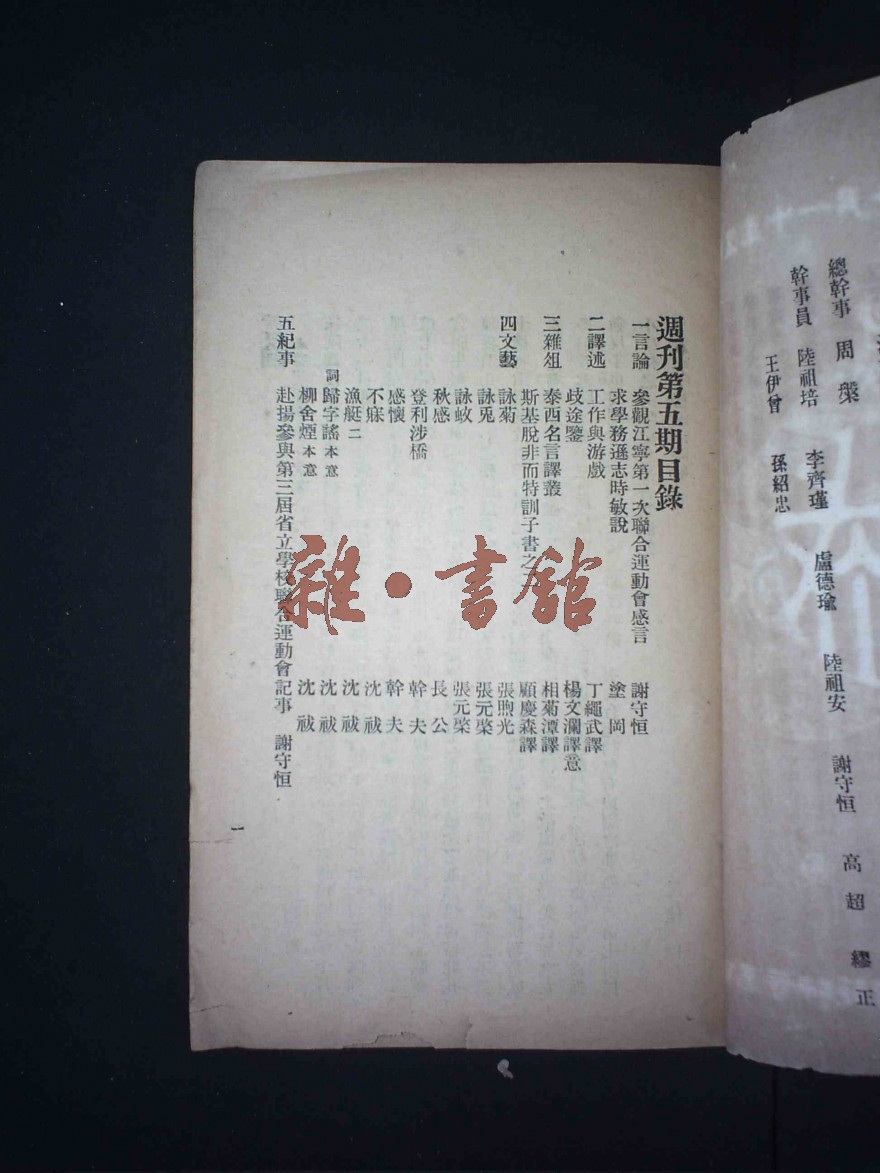 總幹事 周槃
幹事員 陸祖培 李齊瑾 盧德瑜 陸祖安 謝守恒 高超 繆正
王伊曾 孫紹忠
週刊第五期目錄
一言論 參觀江寧第一次聯合運動會感言 謝守恒
求學務遜志時敏說 塗岡
二譯述 工作與游戲 丁繩武譯
歧途鑒 楊文瀾譯意
三雜俎 泰西名言譯叢 相菊潭譯
斯基脫非而特訓子書之 顧慶森譯
四文藝 詠菊 張煦光
詠兎 張元棨
詠蚊 張元棨
秋感 長公
登利涉橋 幹夫
感懷 幹夫
不寐 沈祓
漁艇二 沈祓
詞 歸字謠本意 沈祓
柳舍煙本意 沈祓
五紀事 赴揚參與第三屆省立學校聯合運動會記事 謝守恒
一
雜·書館